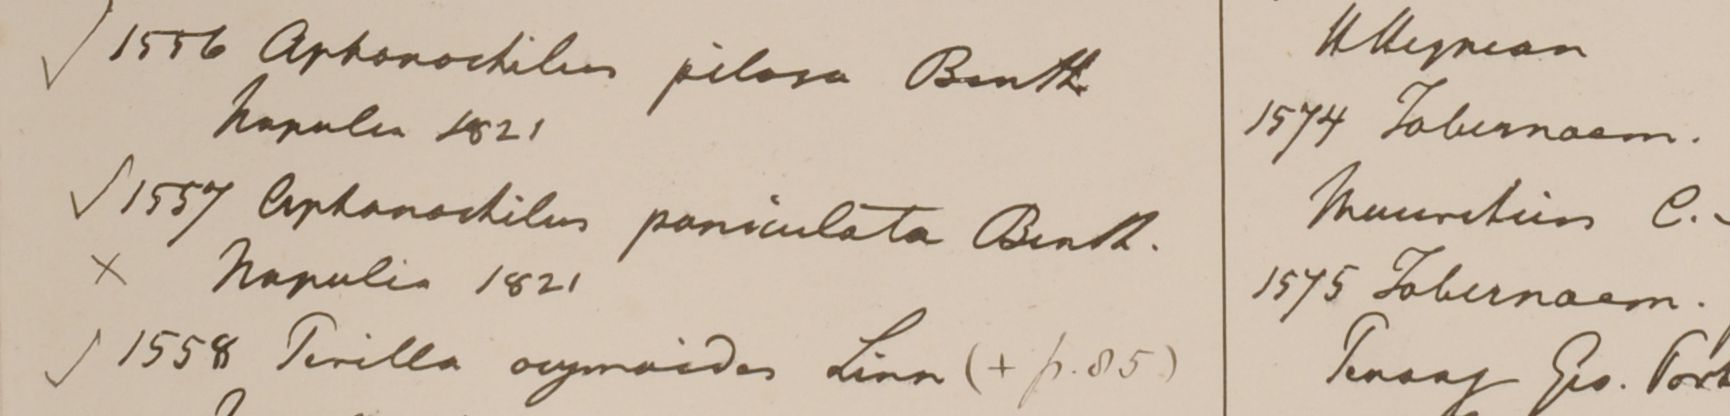 √ 1556 Aphanochilus pilosa Benth.
Napalia 1821
√ 1557 Aphanochilus paniculata Benth.
× Napalia 1821
√ 1558 Perilla ocymoides Linn (+ p. 85)
1574 Tabernaem.
Mauritius C.
1575 Tabernaem.
Penang Geo. Port